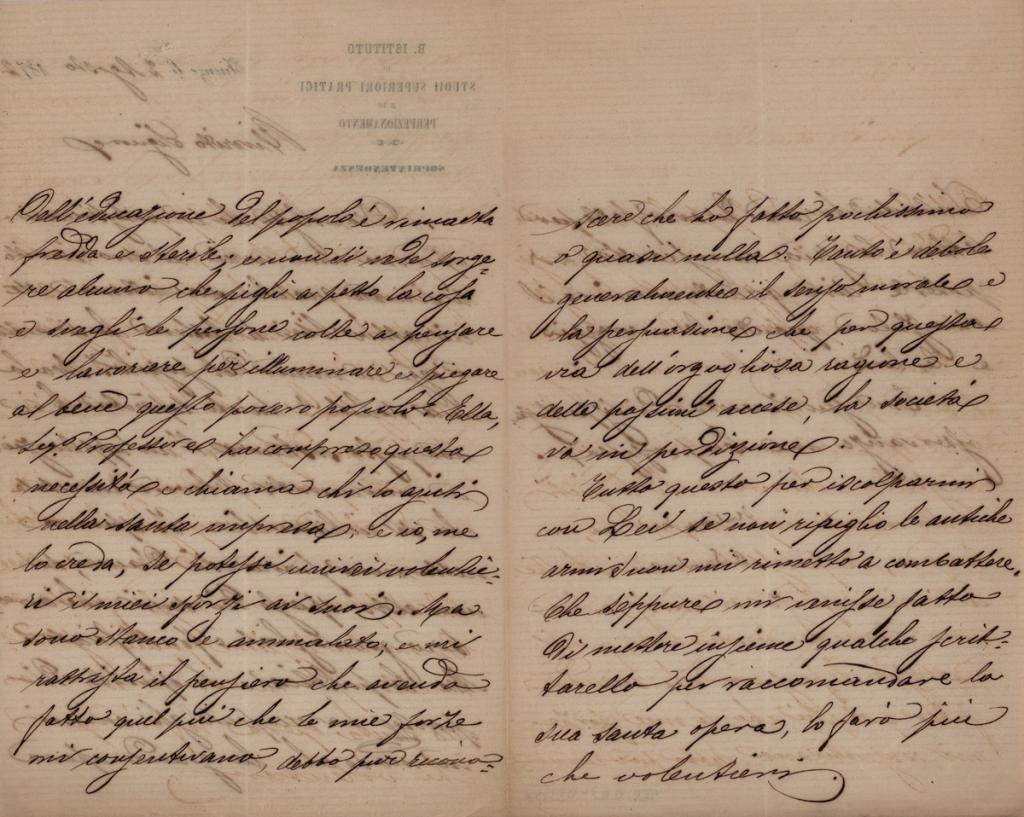 Dell'educazione del popolo è rimasta
fredda e sterile; e non si vede sorge=
re alcuno che pigli a petto la cosa
e svegli le persone colte a pensare
e lavorare per illuminare e piegare
al bene questo povero popolo. Ella,
Sig. Professore ha compreso questa
necessità e chiama chi lo ajuti
nella santa impresa, e io, me
lo creda, se potessi unirei volentie=
ri i miei sforzi ai suoi. Ma
sono stanco e ammalato, e mi
rattrista il pensiero che avendo
fatto quel più che le mie forze
mi consentivano, debbo pur ricono=
scere che ho fatto pochissimo
o quasi nulla. Tanto è debole
generalmente il senso morale e
la persuasione che per questa
via dell'orgogliosa ragione e
delle passioni accese la società
va in perdizione.
Tutto questo per iscolparmi
con Lei se non ripiglio le antiche
armi e non mi rimetto a combattere.
Che seppure mi venisse fatto
di mettere insieme qualche scrit=
tarello per raccomandare la
sua santa opera, lo farò più
che volentieri.
R. ISTITUTO
DI
STUDII SUPERIORI PRATICI
E DI
PERFEZIONAMENTO
SOPRINTENDENZA
Firenze li 2 Agosto 1872
Riverito Signore